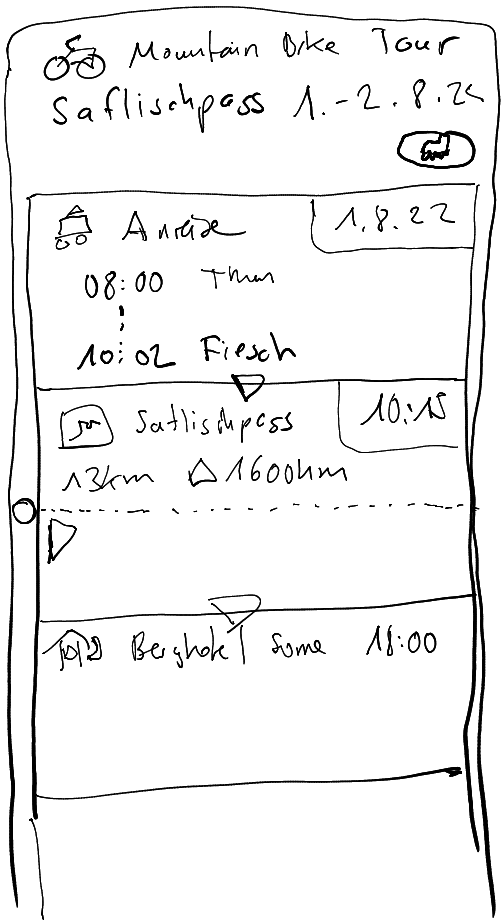 Mountain Bike Tour
Saflischpass 1.-2.8.22
Anreise 1.8.22
08:00 Thun
10:02 Fiesch
Saflischpass 10:15
13km △1600hm
Berghotel Sonne 18:00